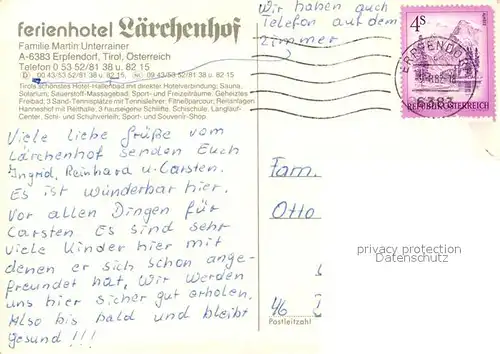 ferienhotel Lärchenhof
Familie Martin Unterrainer
A-6383 Erpfendorf, Tirol, Österreich
Telefon 0 53 52/81 38 u. 82 15
D 00 43/53 52/81 38 u. 82 15, NL 09 43/53 52/81 38 u. 82 15
Tirols schönstes Hotel-Hallenbad mit direkter Hotelverbindung; Sauna,
Solarium; Sauerstoff-Massagebad; Sport- und Freizeiträume; Geheiztes
Freibad; 3 Sand-Tennisplätze mit Tennislehrer; Fitneßparcour; Reitanlagen
Hanneshof mit Reithalle; 3 hauseigene Schilifte, Schischule, Langlauf-
Center, Schi- und Schuhverleih; Sport- und Souvenir-Shop.
Wir haben auch
Telefon auf dem
Zimmer
4S
ERPFENDORF
6383
REPUBLIK ÖSTERREICH
Viele liebe Grüße vom
Lärchenhof senden Euch
Ingrid, Reinhard u. Carsten.
Es ist wunderbar hier.
Vor allen Dingen für
Carsten Es sind sehr
viele Kinder hier mit
denen er sich schon ange-
freundet hat. Wir werden
uns hier sicher gut erholen.
Also bis bald und bleibt
gesund!!!
Fam.
Otto
privacy protection
Datenschutz
46
Postleitzahl